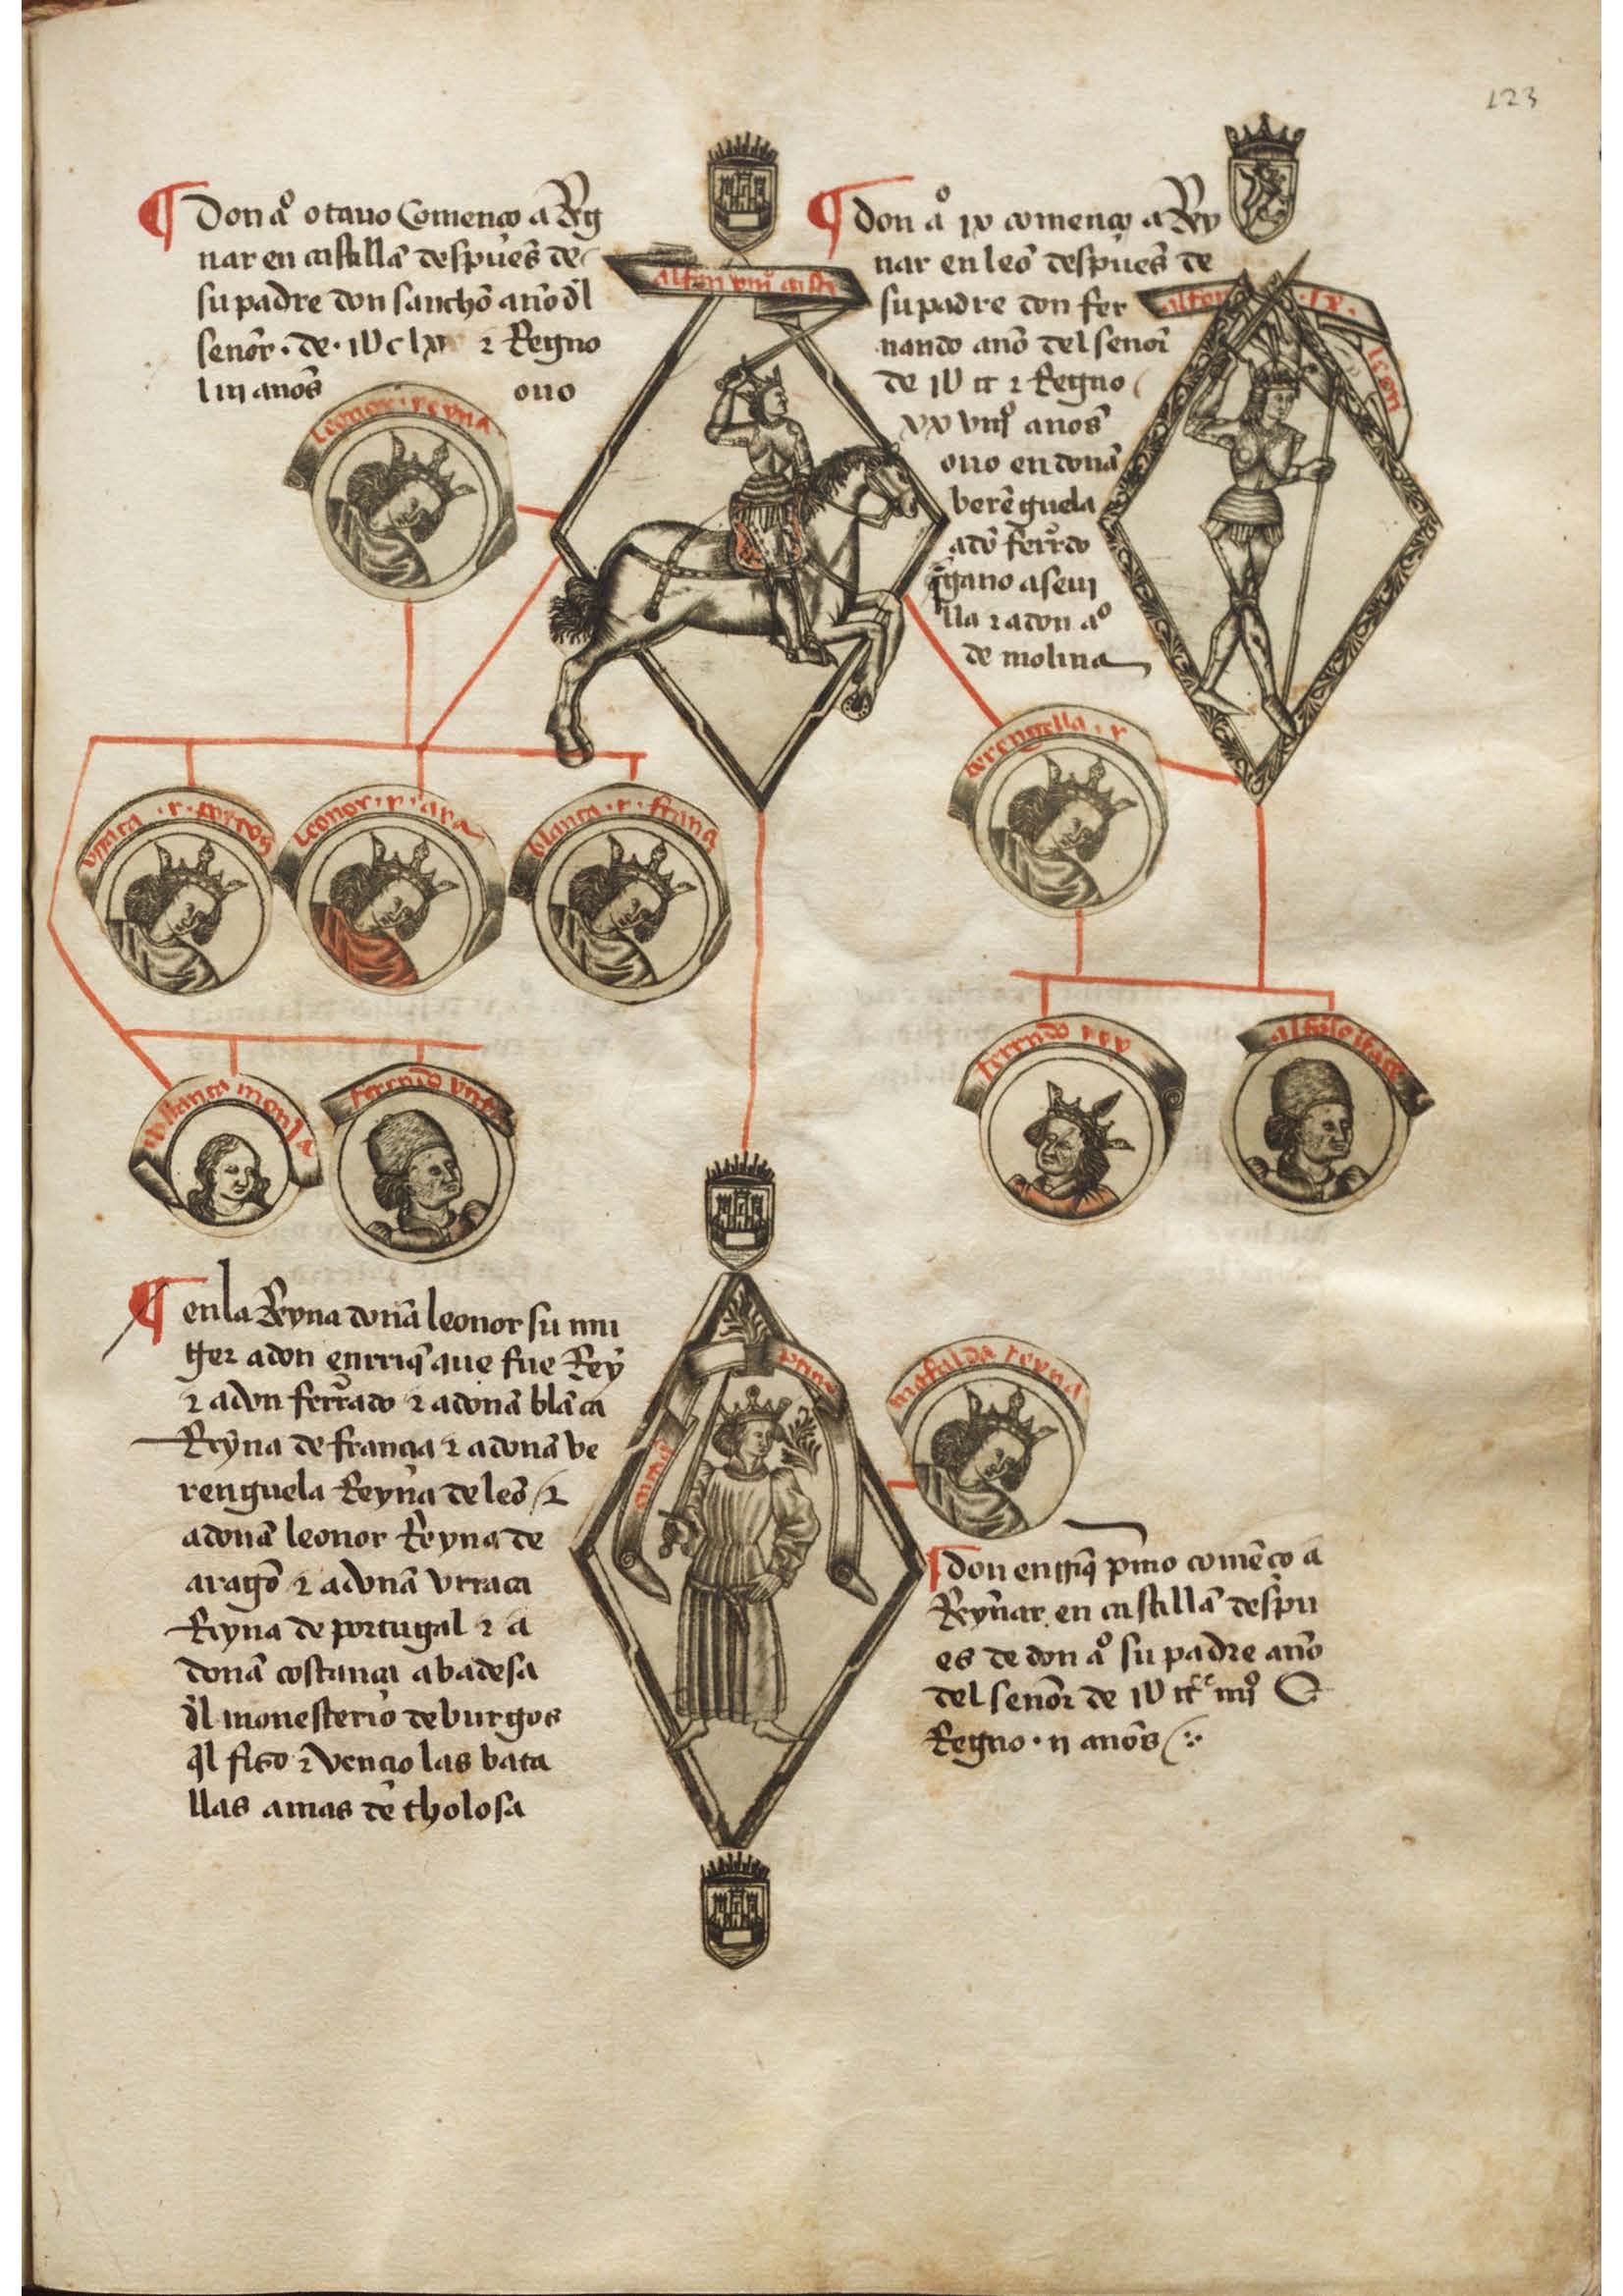 123
¶ Don aº otauo Començo a Reg
nar en castilla despues de
su padre don sancho año dl
señor · de · 1U c lx ⁊ Regno
l iii años ouo
alfon viiiº casti
leonor · reyna
¶ don aº ix començo a Rey
nar en leõ despues de
su padre don fer
nando año del señor
de 1U cc ⁊ Regno
xx viiijº años
ouo en doña
berẽguela
a dõ ferrdo
q̃ gano a seui
lla ⁊ a don aº
de molina
alfon · IX ·
leon
berenguella · r
urraca · r · portog
leonor · r · ara
blanca · r · frança
costança monja
ferrndo ynfa
ferrndo rey
alfõso ifãte
¶ en la Reyna doña leonor su mu
ger a don enrriq̃ que fue Rey
⁊ a don ferrãdo ⁊ a doña blãca
Reyna de francia ⁊ a doña be
renguela Reyna de leõ ⁊
a doña leonor Reyna de
aragõ ⁊ a doña vrraca
Reyna de portugal ⁊ a
doña costança abadesa
dl monesterio de burgos
q̃l fizo ⁊ vencio las bata
llas amas de tholosa
enrriq̃
prímo
mafalda reyna
¶ don enrriq̃ pímo comẽço a
Reynar en castilla despu
es de don aº su padre año
del señor de 1U ccº xiiijº ⁊
Regno · ii años